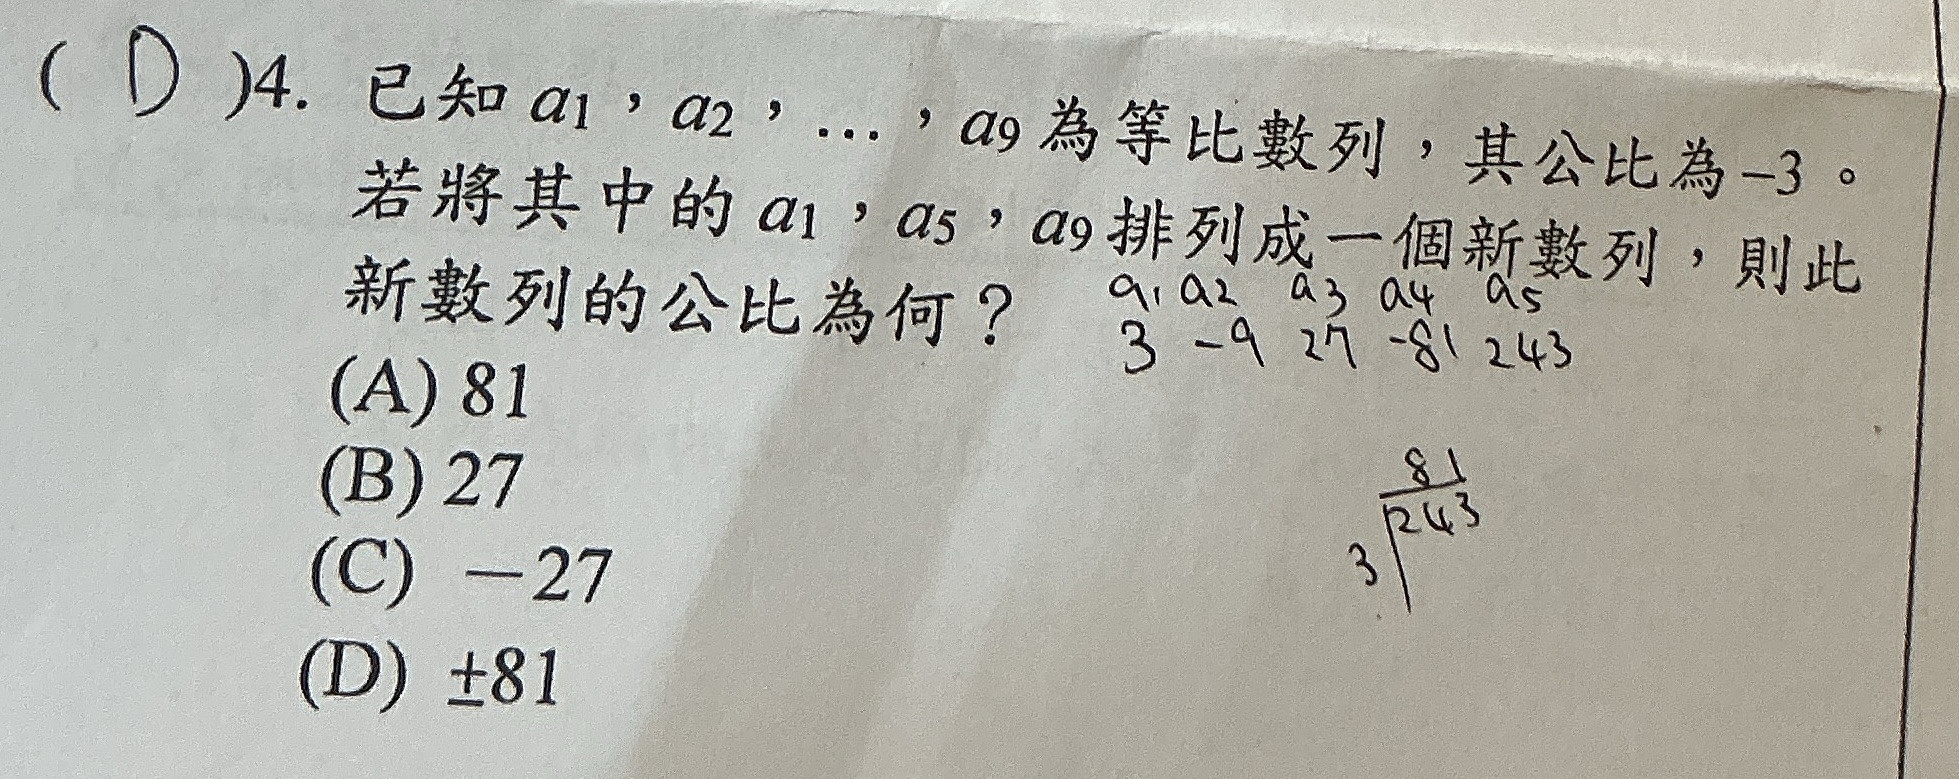 ( D )4. 已知 a1，a2，…，a9 為等比數列，其公比為–3。
若將其中的 a1，a5，a9 排列成一個新數列，則此
新數列的公比為何？
a1 a2 a3 a4 a5
3 -9 27 -81 243
(A) 81
(B) 27
(C) －27
(D) ±81
81
3 243